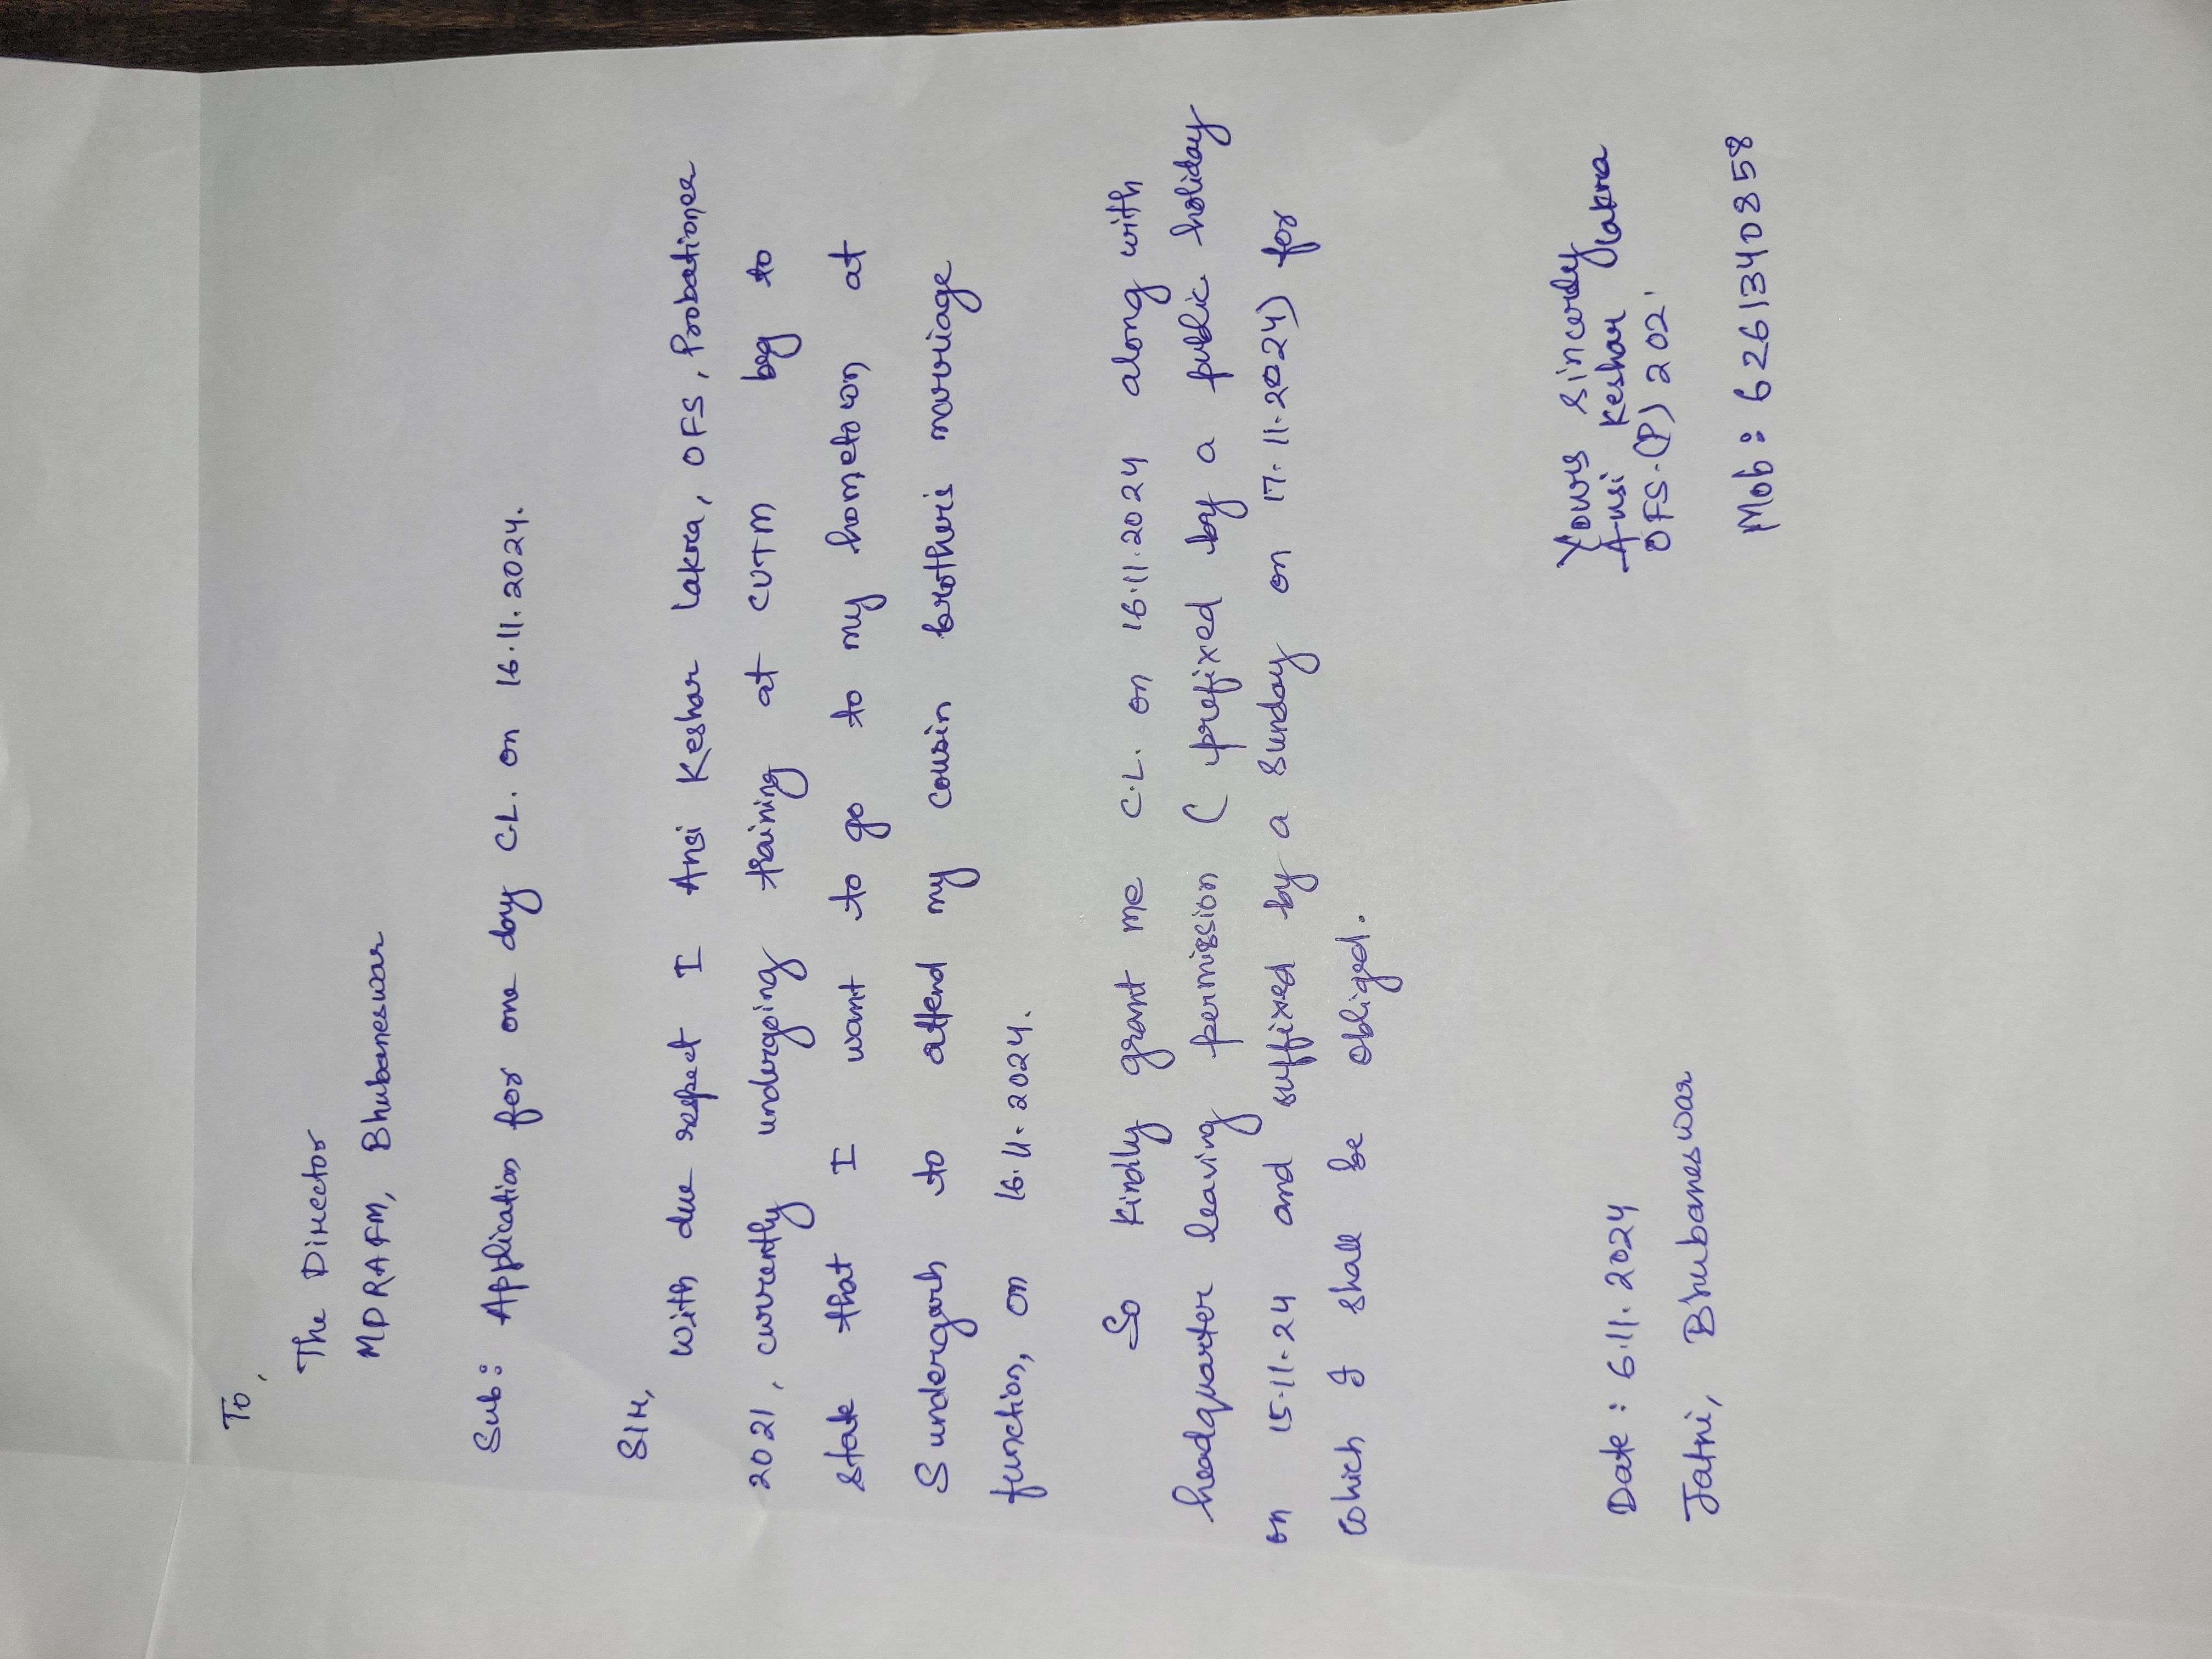 To,
The Director
MDRAFM, Bhubaneswar
Sub: Application for one day C.L. on 16.11.2024.
Sir,
With due respect I Ansi Keshar Lakra, OFS, Probationer
2021, currently undergoing training at CUTM beg to
state that I want to go to my hometown at
Sundergarh to attend my cousin brother's marriage
function, on 16.11.2024.
So kindly grant me C.L. on 16.11.2024 along with
headquarter leaving permission ( prefixed by a public holiday
on 15.11.24 and suffixed by a Sunday on 17.11.2024) for
which I shall be obliged.
Yours sincerly
Ansi Keshar Lakra
Date : 6.11.2024
OFS-(P) 2021
Jatni, Bhubaneswar
Mob : 6261340858